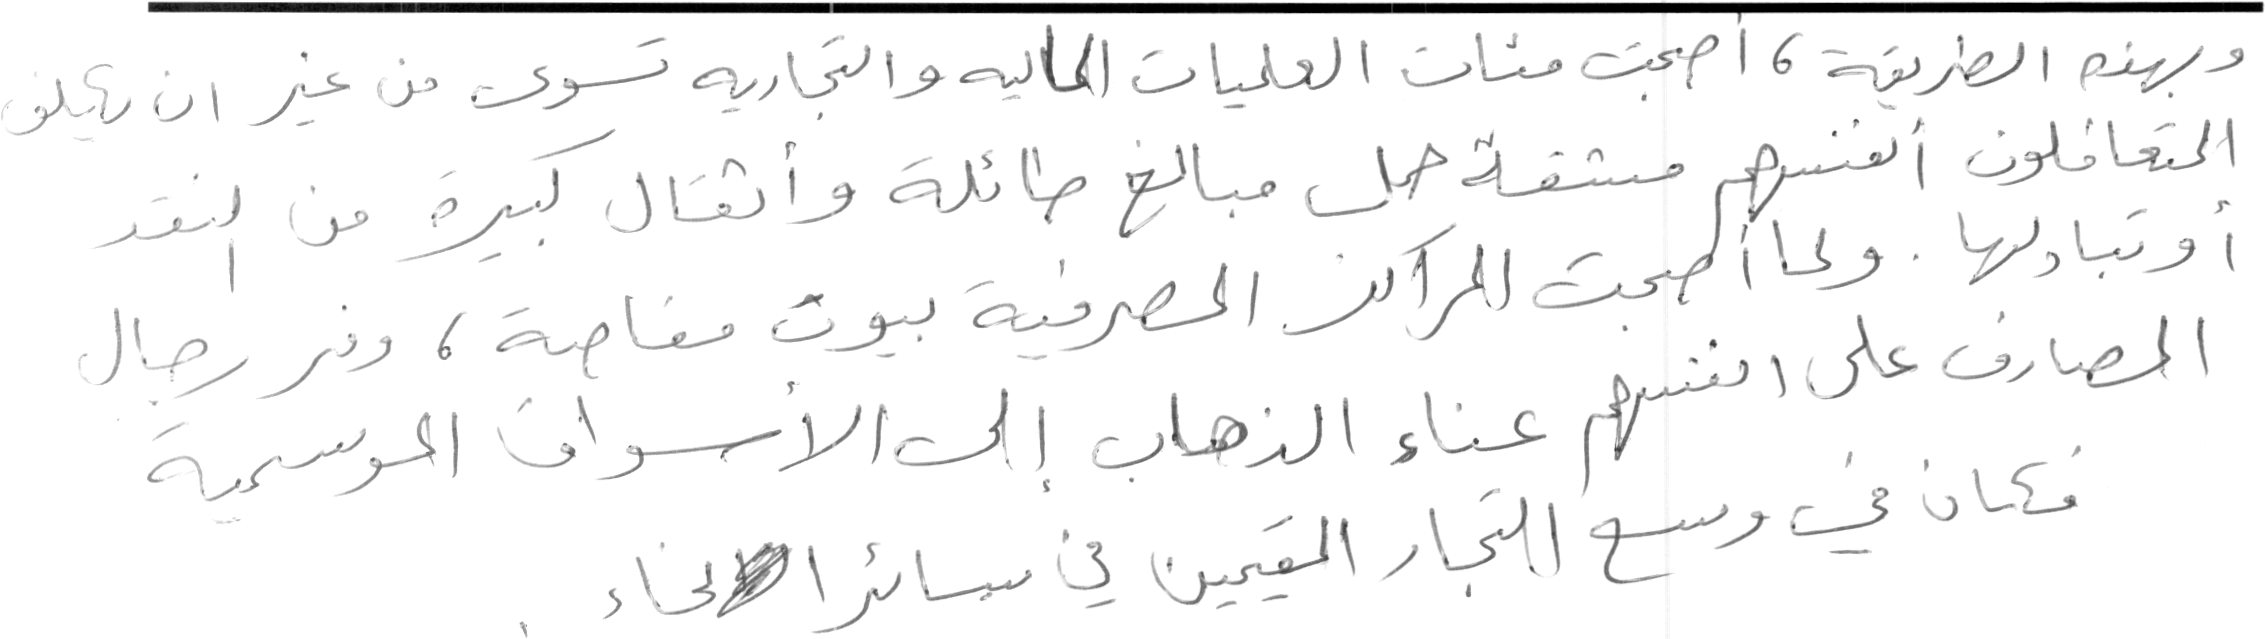 وبهذه الطريقة، أصبحت مئات العمليات المالية والتجارية تسوى من غير ان يكلف
المتعاملون أنفسهم مشقة حمل مبالغ طائلة وأثقال كبيرة من النقد
أو تبادلها. ولما أصبحت للمراكز المصرفية بيوت مقاصة، وفر رجال
المصارف على انفسهم عناء الذهاب إلى الأسواق الموسمية
فكان في وسع التجار المقيمين في سائر انحاء.